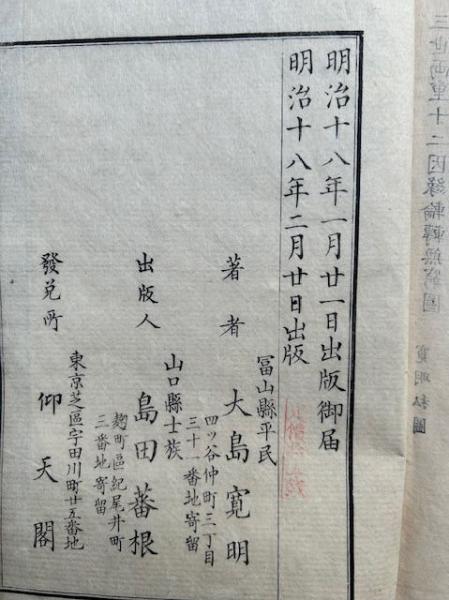 三世両重十二因縁輪轉無窮圖
寛明私圖
明治十八年一月廿一日出版御届
明治十八年二月廿日出版
冨山縣平民
著者 大島寛明
四ツ谷仲町三丁目
三十一番地寄留
山口縣士族
出版人 島田蕃根
麹町區紀尾井町
三番地寄留
東京芝區宇田川町廿五番地
發兌所 仰天閣